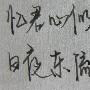 忆君心似
日夜东流